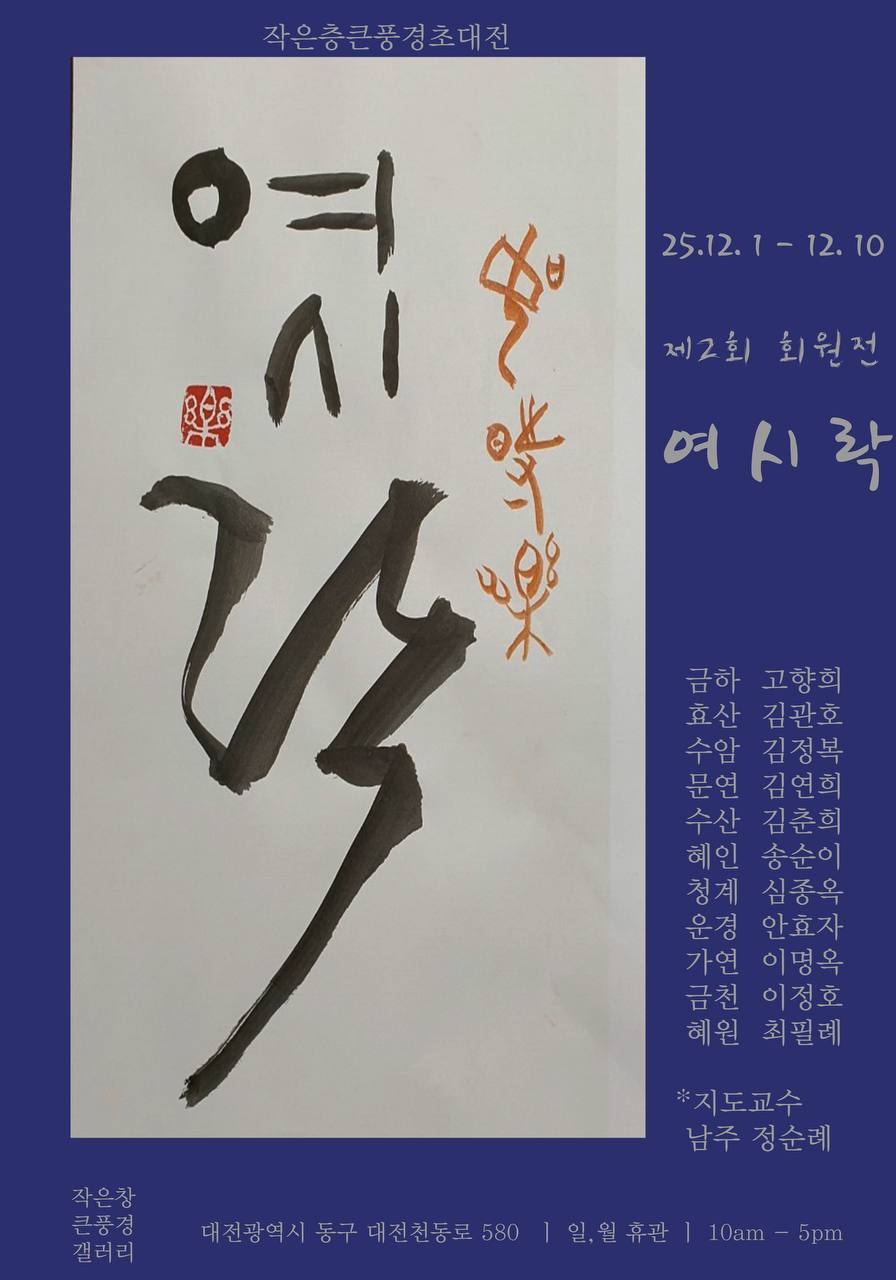 작은층큰풍경초대전
여시
락
樂
如
是
樂
25.12. 1 - 12. 10
제2회 회원전
여시락
금하 고향희
효산 김관호
수암 김정복
문연 김연희
수산 김춘희
혜인 송순이
청계 심종옥
운경 안효자
가연 이명옥
금천 이정호
혜원 최필례
*지도교수
남주 정순례
작은창
큰풍경
갤러리
대전광역시 동구 대전천동로 580 | 일,월 휴관 | 10am - 5pm